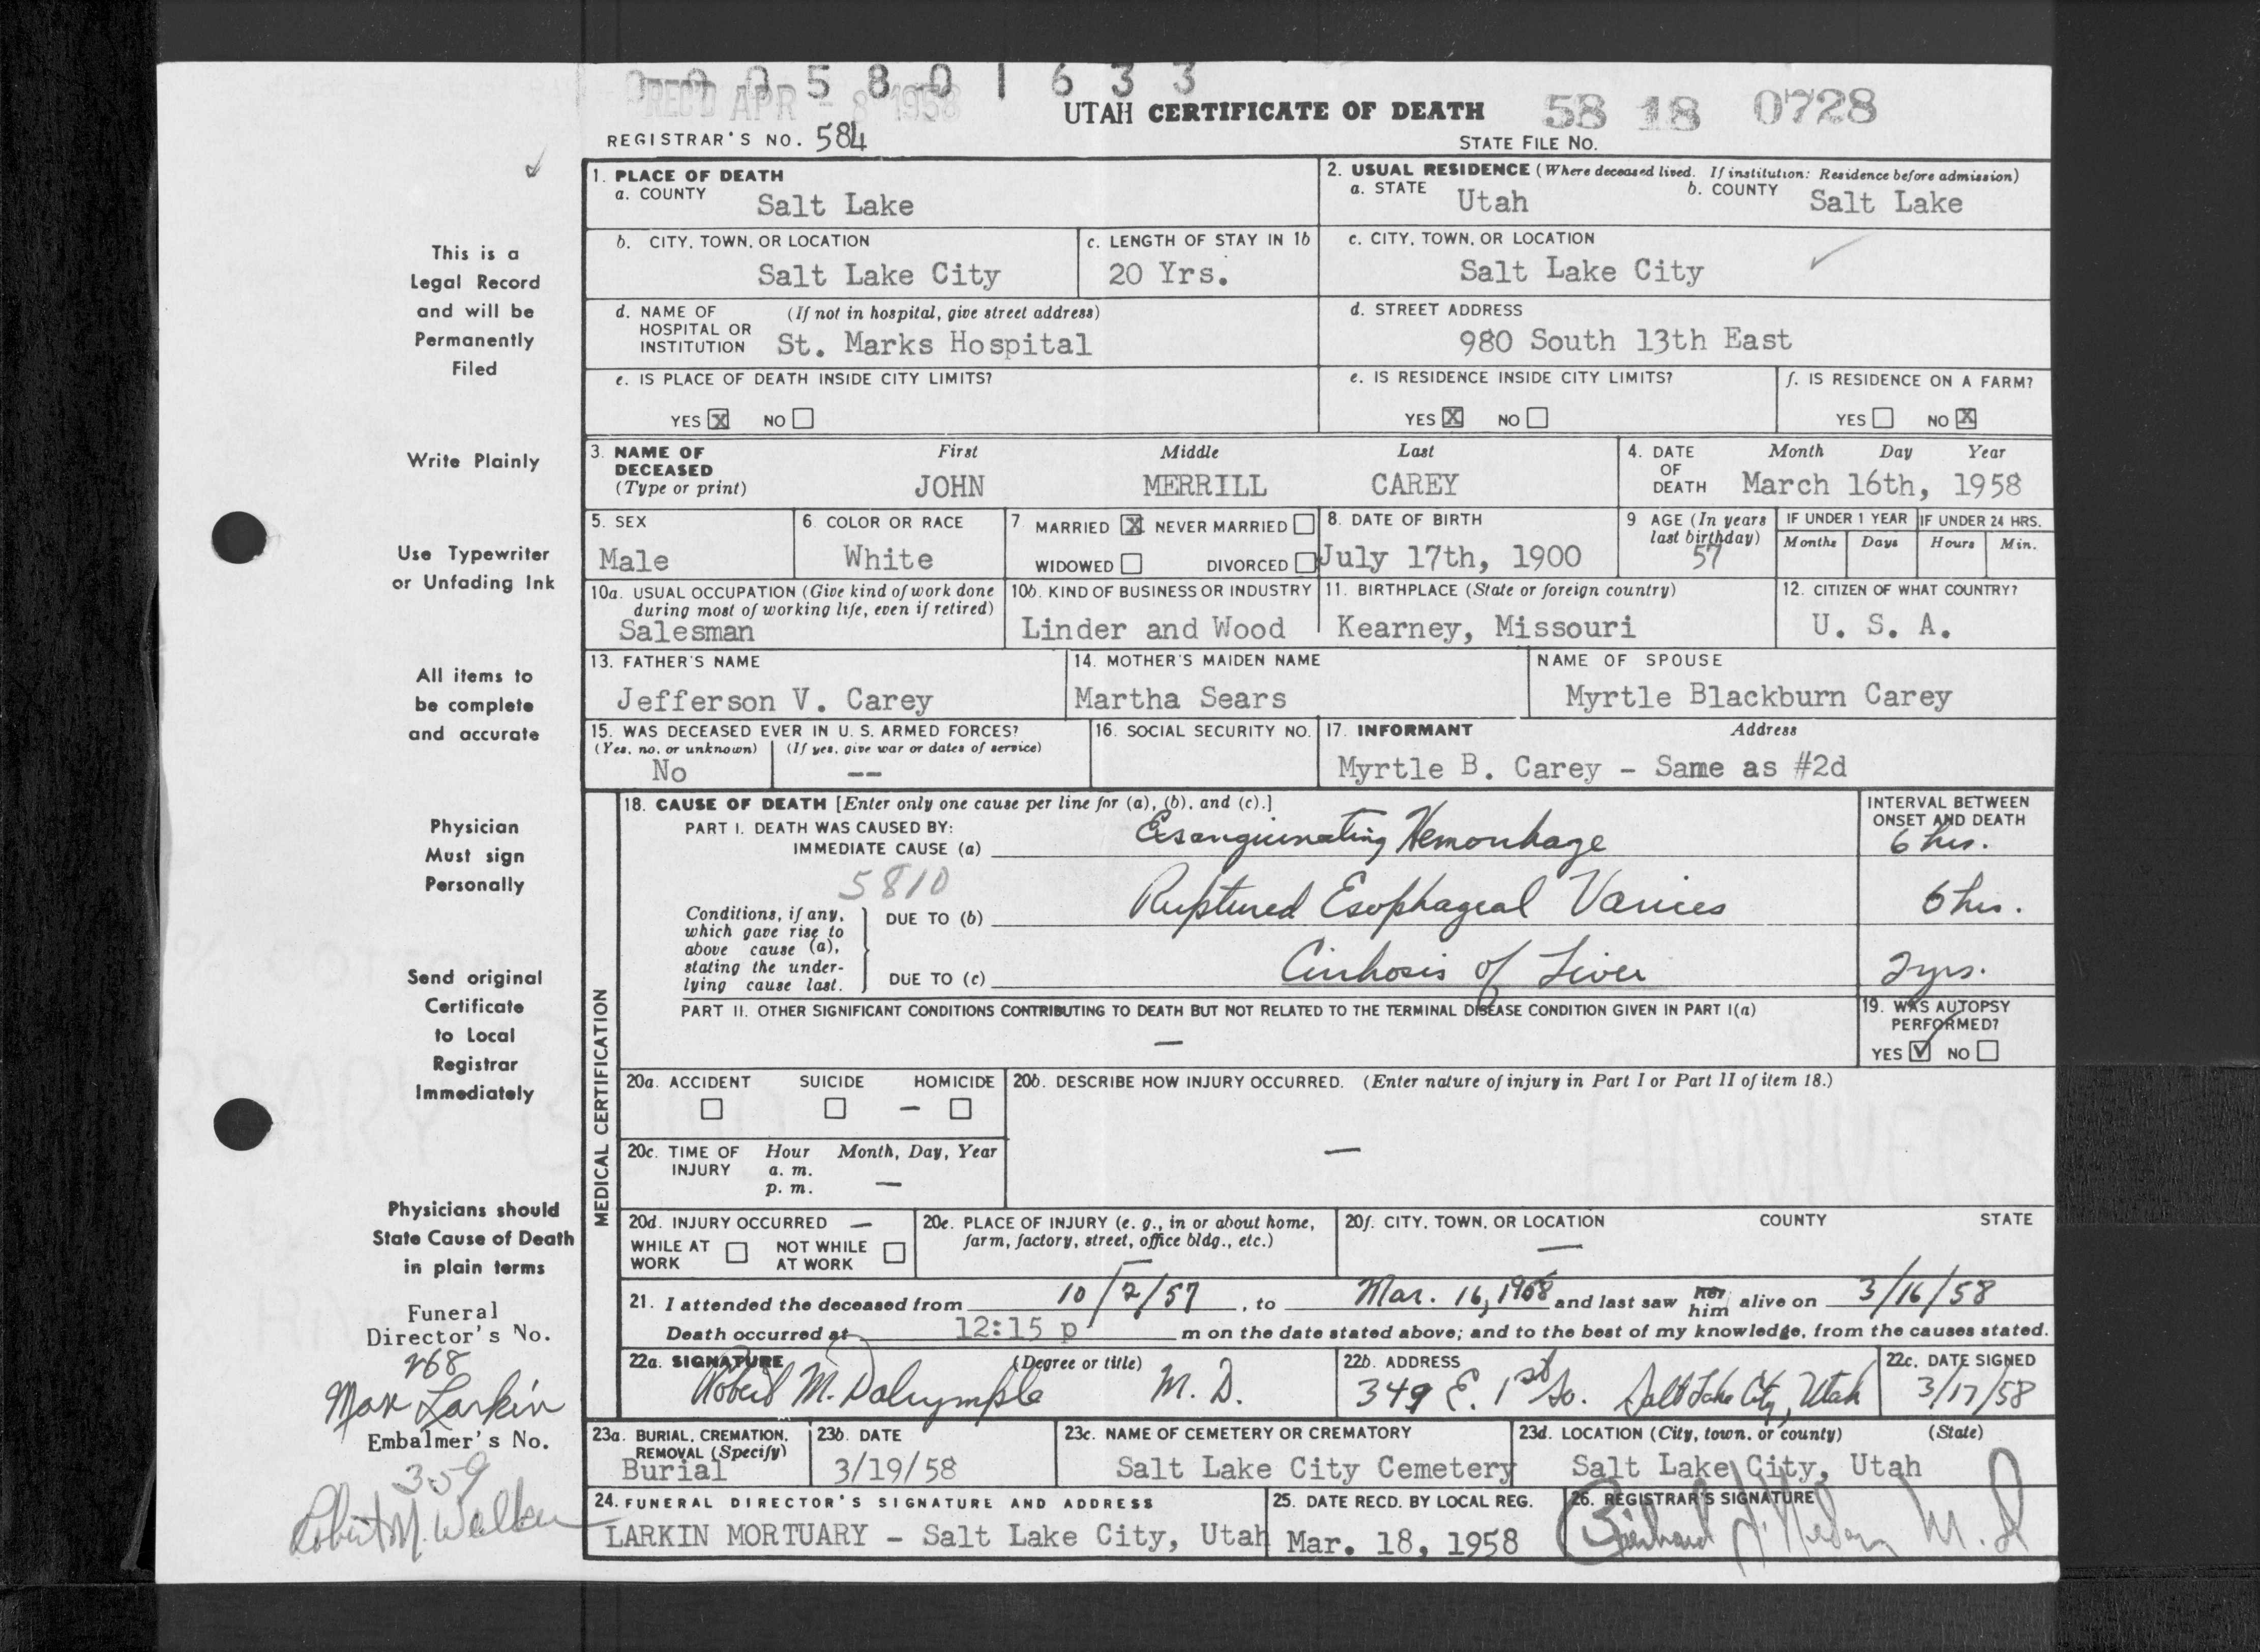 0 0 0 5 8 0 1 6 3 3
REC'D APR - 8 1958
UTAH CERTIFICATE OF DEATH 58 18 0728
REGISTRAR'S NO. 584
STATE FILE No.
This is a
Legal Record
and will be
Permanently
Filed
Write Plainly
Use Typewriter
or Unfading Ink
All items to
be complete
and accurate
Physician
Must sign
Personally
Send original
Certificate
to Local
Registrar
Immediately
Physicians should
State Cause of Death
in plain terms
Funeral
Director's No.
268
Max Larkin
Embalmer's No.
359
Robert M. Walker
1. PLACE OF DEATH
a. COUNTY Salt Lake
2. USUAL RESIDENCE (Where deceased lived. If institution: Residence before admission)
a. STATE Utah b. COUNTY Salt Lake
b. CITY, TOWN, OR LOCATION
Salt Lake City
c. LENGTH OF STAY IN 1b
20 Yrs.
c. CITY, TOWN, OR LOCATION
Salt Lake City
d. NAME OF HOSPITAL OR INSTITUTION (If not in hospital, give street address)
St. Marks Hospital
d. STREET ADDRESS
980 South 13th East
e. IS PLACE OF DEATH INSIDE CITY LIMITS?
YES X NO
e. IS RESIDENCE INSIDE CITY LIMITS?
YES X NO
f. IS RESIDENCE ON A FARM?
YES NO X
3. NAME OF DECEASED (Type or print)
First Middle Last
JOHN MERRILL CAREY
4. DATE OF DEATH Month Day Year
March 16th, 1958
5. SEX
Male
6. COLOR OR RACE
White
7. MARRIED X NEVER MARRIED
WIDOWED DIVORCED
8. DATE OF BIRTH
July 17th, 1900
9 AGE (In years last birthday)
57
IF UNDER 1 YEAR
Months Days
IF UNDER 24 HRS.
Hours Min.
10a. USUAL OCCUPATION (Give kind of work done during most of working life, even if retired)
Salesman
10b. KIND OF BUSINESS OR INDUSTRY
Linder and Wood
11. BIRTHPLACE (State or foreign country)
Kearney, Missouri
12. CITIZEN OF WHAT COUNTRY?
U. S. A.
13. FATHER'S NAME
Jefferson V. Carey
14. MOTHER'S MAIDEN NAME
Martha Sears
NAME OF SPOUSE
Myrtle Blackburn Carey
15. WAS DECEASED EVER IN U. S. ARMED FORCES?
(Yes, no, or unknown) (If yes, give war or dates of service)
No --
16. SOCIAL SECURITY NO.
17. INFORMANT Address
Myrtle B. Carey - Same as #2d
MEDICAL CERTIFICATION
18. CAUSE OF DEATH [Enter only one cause per line for (a), (b), and (c).]
INTERVAL BETWEEN ONSET AND DEATH
PART I. DEATH WAS CAUSED BY:
IMMEDIATE CAUSE (a) Exsanguinating Hemorrhage 6 hrs.
5810
Conditions, if any, which gave rise to above cause (a), stating the underlying cause last.
DUE TO (b) Ruptured Esophageal Varices 6 hrs.
DUE TO (c) Cirrhosis of Liver 2 yrs.
PART II. OTHER SIGNIFICANT CONDITIONS CONTRIBUTING TO DEATH BUT NOT RELATED TO THE TERMINAL DISEASE CONDITION GIVEN IN PART I(a)
—
19. WAS AUTOPSY PERFORMED?
YES ✓ NO
20a. ACCIDENT SUICIDE HOMICIDE
—
20b. DESCRIBE HOW INJURY OCCURRED. (Enter nature of injury in Part I or Part II of item 18.)
—
20c. TIME OF INJURY Hour Month, Day, Year
a. m.
p. m. —
20d. INJURY OCCURRED —
WHILE AT WORK NOT WHILE AT WORK
20e. PLACE OF INJURY (e. g., in or about home, farm, factory, street, office bldg., etc.)
—
20f. CITY, TOWN, OR LOCATION COUNTY STATE
—
21. I attended the deceased from 10/2/57, to Mar. 16, 1958 and last saw her him alive on 3/16/58
Death occurred at 12:15 p m on the date stated above; and to the best of my knowledge, from the causes stated.
22a. SIGNATURE (Degree or title)
Robert M. Dalrymple M. D.
22b. ADDRESS
349 E. 1st So. Salt Lake City, Utah
22c. DATE SIGNED
3/17/58
23a. BURIAL, CREMATION, REMOVAL (Specify)
Burial
23b. DATE
3/19/58
23c. NAME OF CEMETERY OR CREMATORY
Salt Lake City Cemetery
23d. LOCATION (City, town, or county) (State)
Salt Lake City, Utah
24. FUNERAL DIRECTOR'S SIGNATURE AND ADDRESS
LARKIN MORTUARY - Salt Lake City, Utah
25. DATE RECD. BY LOCAL REG.
Mar. 18, 1958
26. REGISTRAR'S SIGNATURE
M. D